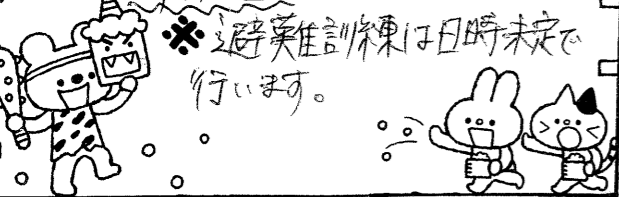 ※避難訓練は日時未定で
行います。